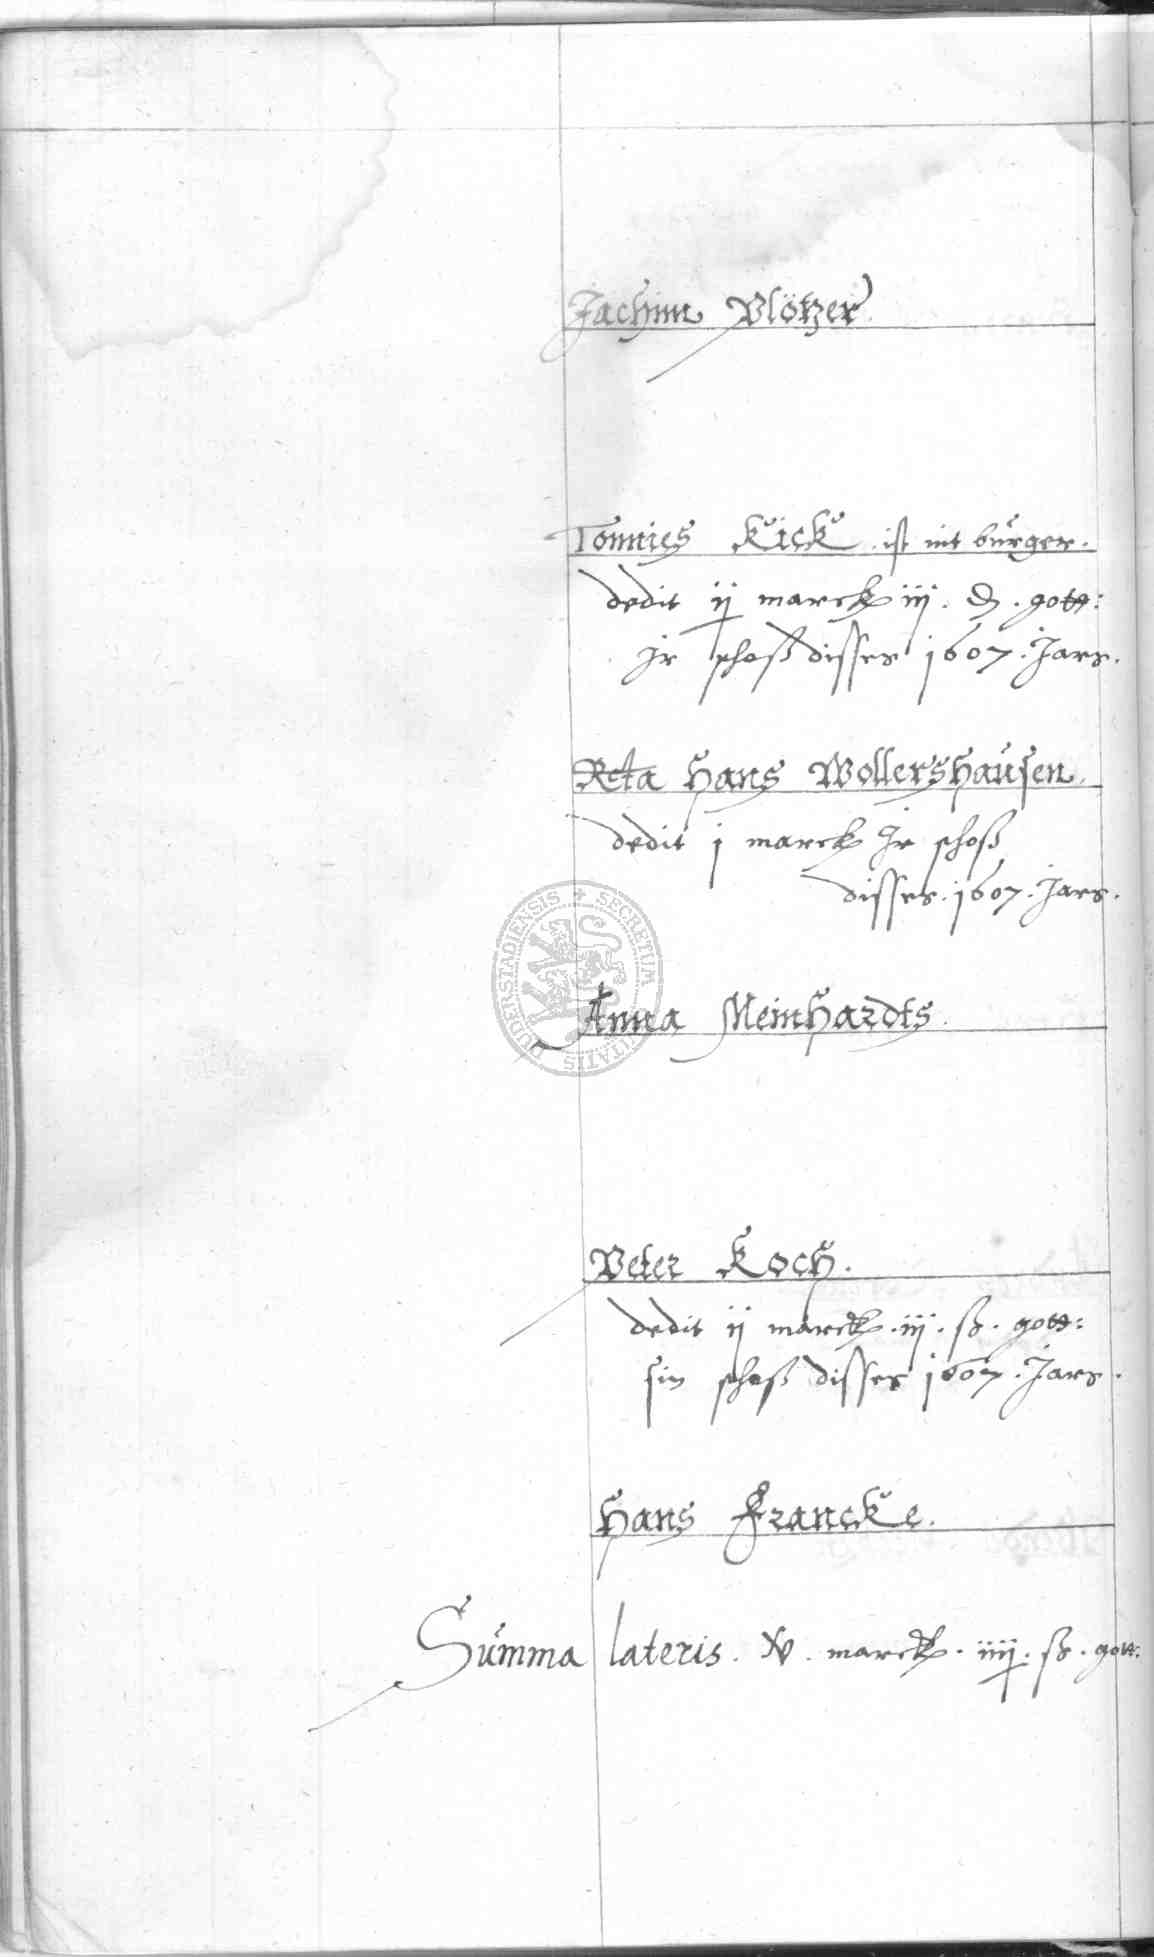 Jachim Plötzer
Tonnies Kück . ist nit bürger .
dedit ij marck iij . ₰ . gott:
Jr schoß disses 1607 . Jars .
Reta Hans Wollershausen
dedit j marck Jr schoß
disses . 1607 . Jars .
SECRETUM CIVITATIS DUDERSTADIENSIS
Anna Meinhardts .
Peter Koch .
dedit ij marck . iij . ß . gott:
sin schoß disses 1607 . Jars .
Hans Francke .
Summa lateris . v . marck . iiij . ß . gott: